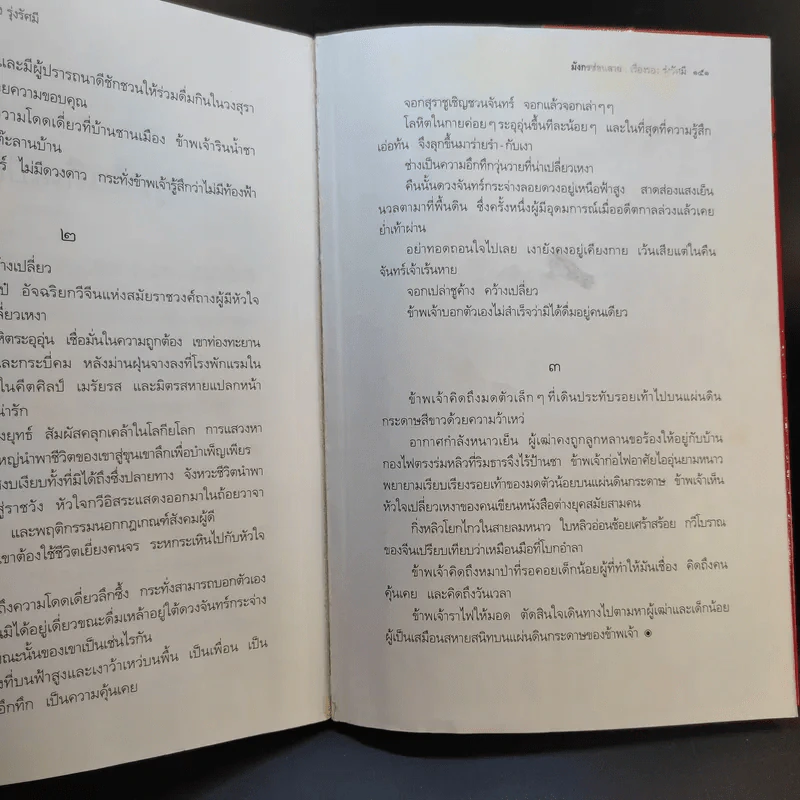 รุ่งรัศมี
และมีผู้ปรารถนาดีชักชวนให้ร่วมดื่มกินในวงสุรา
ยความขอบคุณ
ความโดดเดี่ยวที่บ้านชานเมือง ข้าพเจ้ารินน้ำชา
ต๊ะลานบ้าน
ร์ ไม่มีดวงดาว กระทั่งข้าพเจ้ารู้สึกว่าไม่มีท้องฟ้า
๒
ว้างเปลี่ยว
ป๋ อัจฉริยกวีจีนแห่งสมัยราชวงศ์ถางผู้มีหัวใจ
ลี่ยวเหงา
หิตระอุอุ่น เชื่อมั่นในความถูกต้อง เขาท่องทะยาน
และกระบี่คม หลังม่านฝุ่นจางลงที่โรงพักแรมใน
ในคีตศิลป์ เมรัยรส และมิตรสหายแปลกหน้า
น่ารัก
งยุทธ์ สัมผัสคลุกเคล้าในโลกียโลก การแสวงหา
ใหญ่นำพาชีวิตของเขาสู่ขุนเขาลึกเพื่อบำเพ็ญเพียร
งบเงียบทั้งที่มิได้ถึงซึ่งปลายทาง จังหวะชีวิตนำพา
สู่ราชวัง หัวใจกวีอิสระแสดงออกมาในถ้อยวาจา
และพฤติกรรมนอกกฎเกณฑ์สังคมผู้ดี
เขาต้องใช้ชีวิตเยี่ยงคนจร ระหกระเหินไปกับหัวใจ
ถึงความโดดเดี่ยวลึกซึ้ง กระทั่งสามารถบอกตัวเอง
นมิได้อยู่เดี่ยวขณะดื่มเหล้าอยู่ใต้ดวงจันทร์กระจ่าง
ขณะนั้นของเขาเป็นเช่นไรกัน
งที่บนฟ้าสูงและเงาว้าเหว่บนพื้น เป็นเพื่อน เป็น
อึกทึก เป็นความคุ้นเคย
มังกรซ่อนลาย ๑๕๑
จอกสุราชูเชิญชวนจันทร์ จอกแล้วจอกเล่าๆๆ
โลหิตในกายค่อยๆ ระอุอุ่นขึ้นทีละน้อยๆ และในที่สุดที่ความรู้สึก
เอ่อท้น จึงลุกขึ้นมาร่ายรำ-กับเงา
ช่างเป็นความอึกทึกวุ่นวายที่น่าเปลี่ยวเหงา
คืนนั้นดวงจันทร์กระจ่างลอยดวงอยู่เหนือฟ้าสูง สาดส่องแสงเย็น
นวลตามาที่พื้นดิน ซึ่งครั้งหนึ่งผู้มีอุดมการณ์เมื่ออดีตกาลล่วงแล้วเคย
ย่ำเท้าผ่าน
อย่าทอดถอนใจไปเลย เงายังคงอยู่เคียงกาย เว้นเสียแต่ในคืน
จันทร์เจ้าเร้นหาย
จอกเปล่าชูค้าง คว้างเปลี่ยว
ข้าพเจ้าบอกตัวเองไม่สำเร็จว่ามิได้ดื่มอยู่คนเดียว
๓
ข้าพเจ้าคิดถึงมดตัวเล็กๆ ที่เดินประทับรอยเท้าไปบนแผ่นดิน
กระดาษสีขาวด้วยความว้าเหว่
อากาศกำลังหนาวเย็น ผู้เฒ่าคงถูกลูกหลานขอร้องให้อยู่กับบ้าน
กองไฟตรงร่มหลิวที่ริมธารจึงไร้ป้านชา ข้าพเจ้าก่อไฟอาศัยไออุ่นยามหนาว
พยายามเรียบเรียงรอยเท้าของมดตัวน้อยบนแผ่นดินกระดาษ ข้าพเจ้าเห็น
หัวใจเปลี่ยวเหงาของคนเขียนหนังสือต่างยุคสมัยสามคน
กิ่งหลิวโยกไกวในสายลมหนาว ใบหลิวอ่อนช้อยเศร้าสร้อย กวีโบราณ
ของจีนเปรียบเทียบว่าเหมือนมือที่โบกอำลา
ข้าพเจ้าคิดถึงหมาป่าที่รอคอยเด็กน้อยผู้ที่ทำให้มันเชื่อง คิดถึงคน
คุ้นเคย และคิดถึงวันเวลา
ข้าพเจ้าราไฟให้มอด ตัดสินใจเดินทางไปตามหาผู้เฒ่าและเด็กน้อย
ผู้เป็นเสมือนสหายสนิทบนแผ่นดินกระดาษของข้าพเจ้า